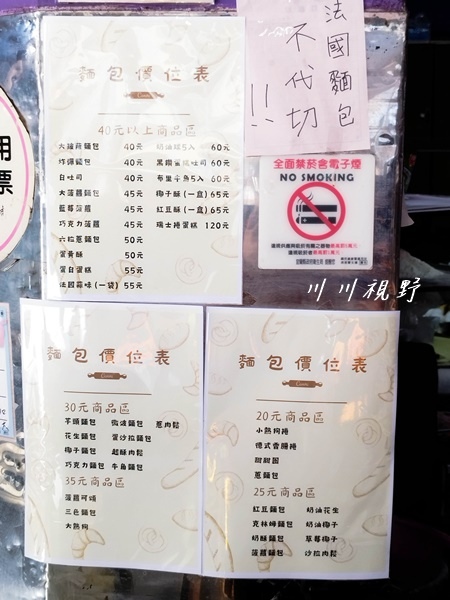 麵包價位表
40元以上商品區
大蒜蒜麵包 40元
炸彈麵包 40元
白吐司 40元
大菠蘿麵包 45元
藍莓菠蘿 45元
巧克力菠蘿 45元
六粒蔥麵包 50元
蛋黃酥 50元
蛋白蛋糕 55元
法國蒜味(一袋) 55元
奶油酥5入 60元
黑糖蜜燒吐司 60元
布里牛角5入 60元
椰子酥(一盒) 65元
紅豆酥(一盒) 65元
瑞士捲蛋糕 120元
法國麵包
不代切
!!
全面禁菸含電子煙
NO SMOKING
川川視野
用
票
麵包價位表
30元商品區
芋頭麵包 微波麵包 蔥肉鬆
花生麵包 蛋沙拉麵包
椰子麵包 起酥肉鬆
巧克力麵包 牛角麵包
35元商品區
菠蘿可頌
三色麵包
大熱狗
麵包價位表
20元商品區
小熱狗捲
德式香腸捲
甜甜圈
蔥麵包
25元商品區
紅豆麵包 奶油花生
克林姆麵包 奶油椰子
奶酥麵包 草莓椰子
菠蘿麵包 沙拉肉鬆